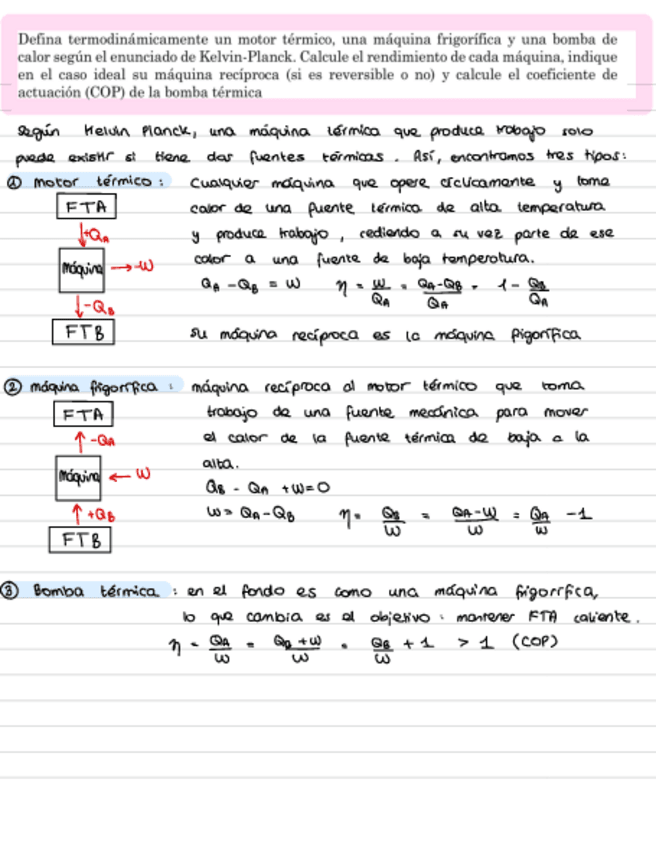 Defina termodinámicamente un motor térmico, una máquina frigorífica y una bomba de
calor según el enunciado de Kelvin-Planck. Calcule el rendimiento de cada máquina, indique
en el caso ideal su máquina recíproca (si es reversible o no) y calcule el coeficiente de
actuación (COP) de la bomba térmica
Según Kelvin Planck, una máquina térmica que produce trabajo solo
puede existir si tiene dos fuentes térmicas. Así, encontramos tres tipos:
① motor térmico: Cualquier máquina que opere cíclicamente y tome
FTA calor de una fuente térmica de alta temperatura
+QA y produce trabajo, cediendo a su vez parte de ese
Máquina → -W calor a una fuente de baja temperatura.
-QB QA - QB = W η = W/QA = QA-QB/QA = 1 - QB/QA
FTB su máquina recíproca es la máquina figorífica
② máquina figorífica: máquina recíproca al motor térmico que toma
FTA trabajo de una fuente mecánica para mover
↑ -QA el calor de la fuente térmica de baja a la
Máquina ← W alta.
QB - QA + W = 0
↑ +QB W = QA - QB η = QB/W = QA-W/W = QA/W - 1
FTB
③ Bomba térmica: en el fondo es como una máquina figorífica,
lo que cambia es el objetivo: mantener FTA caliente.
η = QA/W = QB+W/W = QB/W + 1 > 1 (COP)